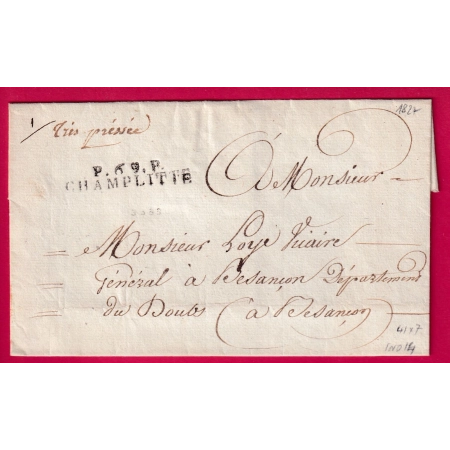 1827
Très pressée
P. 69. P.
CHAMPLITTE
A Monsieur
Monsieur Loye Vicaire
Général à Besançon Département
du Doubs à Besançon
41x7
IND 14